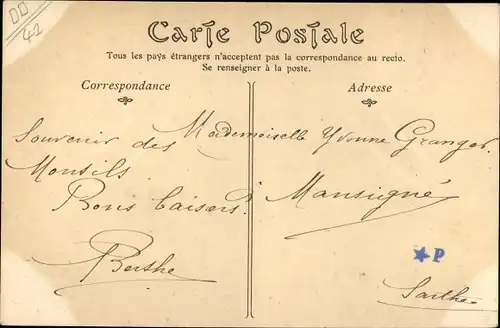 42
Carte Postale
Tous les pays étrangers n'acceptent pas la correspondance au recto.
Se renseigner à la poste.
Correspondance
Souvenir des
Monsils.
Bons baisers.
Berthe
Adresse
Mademoiselle Yvonne Granger
Mansigné
P
Sarthe